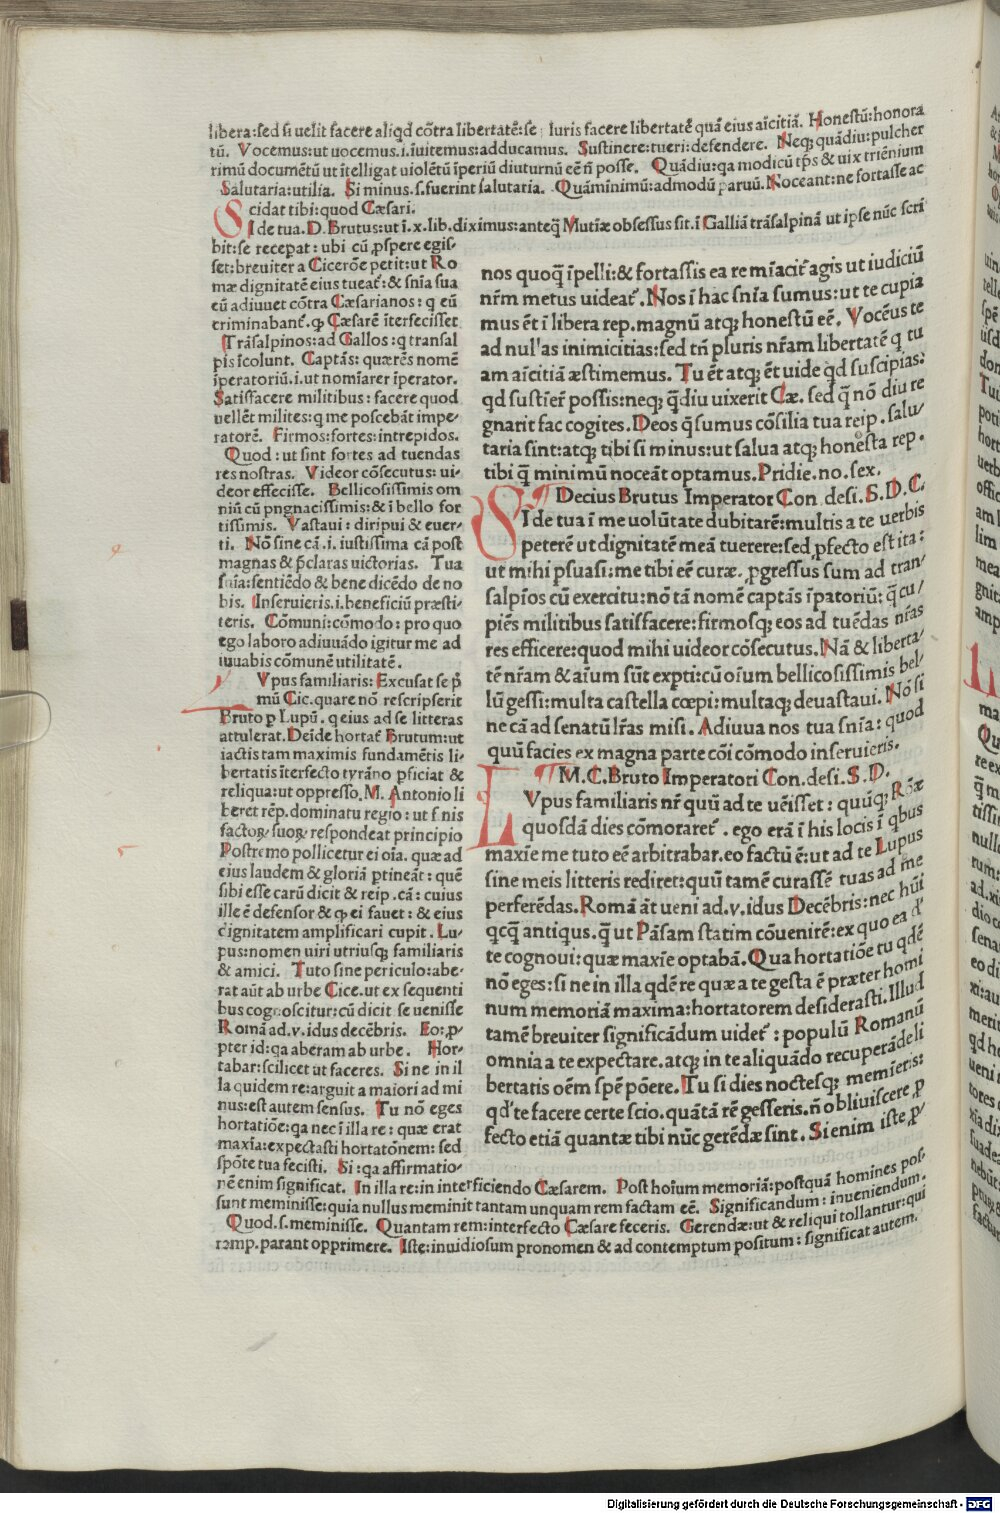 libera:sed si uelit facere aliqd cõtra libertatẽ:se iuris facere libertatẽ quã eius aĩcitiã. Honestũ:honora
tũ. Vocemus:ut uocemus.i.ĩuitemus:adducamus. Sustinere:tueri:defendere. Neqꝫ quãdiu:pulcher
rimũ documẽtũ ut ĩtelligat uiolẽtũ ĩperiũ diuturnũ eẽ ñ posse. Quãdiu:qa modicũ tp̃s & uix triẽnium
Salutaria:utilia. Si minus.s.fuerint salutaria. Quãminimũ:admodũ paruũ. Noceant:ne fortasse ac
cidat tibi:quod Cæsari.
SI de tua.D.Brutus:ut ĩ.x.lib.diximus:anteq̃ Mutiæ obsessus sit.ĩ Galliã trãsalpinã ut ipse nũc scri
bit:se recepat:ubi cũ ꝓspere egis-
set:breuiter a Cicerõe petit:ut Ro
mæ dignitatẽ eius tueat̃:& snĩa sua
eũ adiuuet cõtra Cæsarianos:q eũ
criminabant̃.ꝙ Cæsarẽ ĩterfecisset
Trãsalpinos:ad Gallos:q transal
pis ĩcolunt. Captãs:quærẽs nomẽ
ĩperatoriũ.i.ut nomĩarer ĩperator.
Satisfacere militibus:facere quod
uellẽt milites:q me poscebãt impe-
ratorẽ. Firmos:fortes:intrepidos.
Quod:ut sint fortes ad tuendas
res nostras. Videor cõsecutus:ui-
deor effecisse. Bellicosissimis om
niũ cũ pngnacissimis:& ĩ bello for
tissimis. Vastaui:diripui & euer-
ti. Nõ sine cã.i.iustissima cã post
magnas & p̃claras uictorias. Tua
snĩa:sentiẽdo & bene dicẽdo de no
bis. Inseruieris.i.beneficiũ præsti-
teris. Cõmuni:cõmodo:pro quo
ego laboro adiuuãdo igitur me ad
iuuabis cõmunẽ utilitatẽ.
LVpus familiaris:Excusat se p̃
mũ Cic.quare nõ rescripserit
Bruto ꝑ Lupũ.q eius ad se litteras
attulerat.Deĩde hortat̃ Brutum:ut
iactis tam maximis fundamẽtis li-
bertatis ĩterfecto tyrãno ꝑficiat &
reliqua:ut oppresso.M.Antonio li
beret rẽp.dominatu regio:ut fĩnis
factoꝝ suoꝝ respondeat principio
Postremo pollicetur ei oĩa.quæ ad
eius laudem & gloriã ꝑtineãt:quẽ
sibi esse carũ dicit & reip.cã:cuius
ille ẽ defensor & ꝙ ei fauet:& eius
dignitatem amplificari cupit. Lu-
pus:nomen uiri utriusqꝫ familiaris
& amici. Tuto sine periculo:abe-
rat aũt ab urbe Cice.ut ex sequenti
bus cognoscitur:cũ dicit se uenisse
Romã ad.v.idus decẽbris. Eo:ꝓ-
pter id:qa aberam ab urbe. Hor-
tabar:scilicet ut faceres. Si ne in il
la quidem re:arguit a maiori ad mi
nus:est autem sensus. Tu nõ eges
hortatiõe:qa nec ĩ illa re:quæ erat
maxĩa:expectasti hortatõnem:sed
spõte tua fecisti. Si:qa affirmatio-
rẽ enim significat. In illa re:in interficiendo Cæsarem. Post hoĩum memoriã:postquã homines pos-
sunt meminisse:quia nullus meminit tantum unquam rem factam eẽ. Significandum:inueniendum.
Quod.s.meminisse. Quantam rem:interfecto Cæsare feceris. Gerendæ:ut & reliqui tollantur:qui
remp.parant opprimere. Iste:inuidiosum pronomen & ad contemptum positum:significat autem.
nos quoq̃ ĩpelli:& fortassis ea re mĩacit̃ agis ut iudiciũ
nr̃m metus uideat̃.Nos ĩ hac snĩa sumus:ut te cupia
mus ẽt ĩ libera rep.magnũ atqꝫ honestũ eẽ. Vocẽus te
ad nul'as inimicitias:sed tñ pluris nr̃am libertatẽ q tu
am aĩcitiã æstimemus. Tu ẽt atqꝫ ẽt uide qd suscipias:
qd sustier̃ possis:neqꝫ q̃diu uixerit Cæ.sed q̃ nõ diu re
gnarit fac cogites.Deos q̃sumus cõsilia tua reip.salu-
taria sint:atqꝫ tibi si minus:ut salua atqꝫ honesta rep.
tibi q̃ minimũ noceãt optamus.Pridie.no.sex.
Decius Brutus Imperator Con.desi.S.D.C.
SI de tua ĩ me uolũtate dubitarẽ:multis a te uerbis
peterẽ ut dignitatẽ meã tuerere:sed ꝓfecto est ita:
ut mihi ꝑsuasi:me tibi eẽ curæ.ꝓgressus sum ad tran-
salpĩos cũ exercitu:nõ tã nomẽ captãs ĩpatoriũ:q̃ cu-
piẽs militibus satisfacere:firmosqꝫ eos ad tuẽdas nr̃as
res efficere:quod mihi uideor cõsecutus.Nã & liberta-
tẽ nr̃am & aĩum sũt expti:cũ oĩum bellicosissimis bel-
lũ gessi:multa castella cœpi:multaqꝫ deuastaui. Nõ si
ne cã ad senatũ lr̃as misi. Adiuua nos tua snĩa:quod
quũ facies ex magna parte cõi cõmodo inseruieris.
M.C.Bruto Imperatori Con.desi.S.D.
LVpus familiaris nr̃ quũ ad te uẽisset:quũqꝫ Romæ
quosdã dies cõmoraret̃.ego erã ĩ his locis ĩ qbus
maxĩe me tuto eẽ arbitrabar.eo factũ ẽ:ut ad te Lupus
sine meis litteris rediret:quũ tamẽ curassẽ tuas ad me
perferẽdas.Romã ãt ueni ad.v.idus Decẽbris:nec hũi
qcq̃ antiqus.q̃ ut Pãsam statim cõuenirẽ:ex quo ea d'
te cognoui:quæ maxĩe optabã.Qua hortatiõe tu qdẽ
nõ eges:si ne in illa qdẽ re quæ a te gesta ẽ præter homi
num memoriã maxima:hortatorem desiderasti.Illud
tamẽ breuiter significãdum uidet̃:populũ Romanũ
omnia a te expectare.atqꝫ in te aliquãdo recuperãdeli
bertatis oẽm spẽ põere.Tu si dies noctesqꝫ memĩeris:
qd' te facere certe scio.quãtã rẽ gesseris.ñ obliuiscere ꝓ
fecto etiã quantæ tibi nũc gerẽdæ sint. Si enim iste ꝓ-
Digitalisierung gefördert durch die Deutsche Forschungsgemeinschaft - DFG